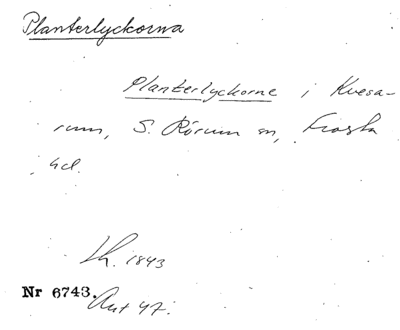 Planterlyckorna
Planterlyckorne i Kvesa-
rum, S. Rörum sn, Frosta
hd.
Lh. 1843
Nr 6743.
Ant 47.